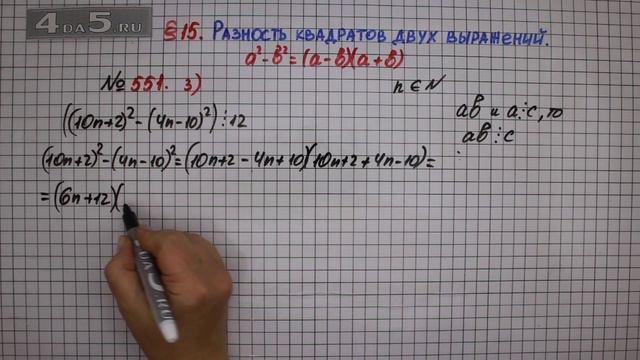 4DA5.RU
§15. Разность квадратов двух выражений.
a²-b²=(a-b)(a+b)
№551. 3) n∈N
((10n+2)²-(4n-10)²)⋮12
ab и a⋮c, то
ab⋮c
(10n+2)²-(4n-10)²=(10n+2-4n+10)(10n+2+4n-10)=
=(6n+12)(
4DA5.RU